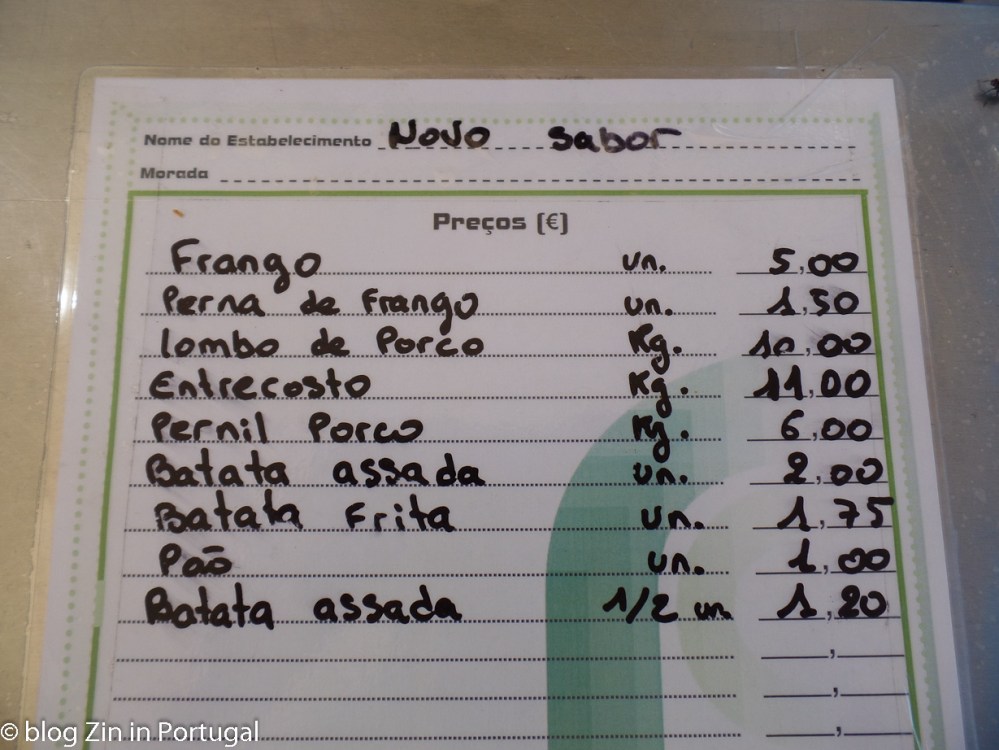 Nome do Estabelecimento Novo Sabor
Morada
Preços (€)
Frango un. 5,00
Perna de Frango un. 1,50
lombo de Porco Kg. 10,00
Entrecosto Kg. 11,00
Pernil Porco Kg. 6,00
Batata assada un. 2,00
Batata Frita un. 1,75
Pão un. 1,00
Batata assada 1/2 un. 1,20
© blog Zin in Portugal